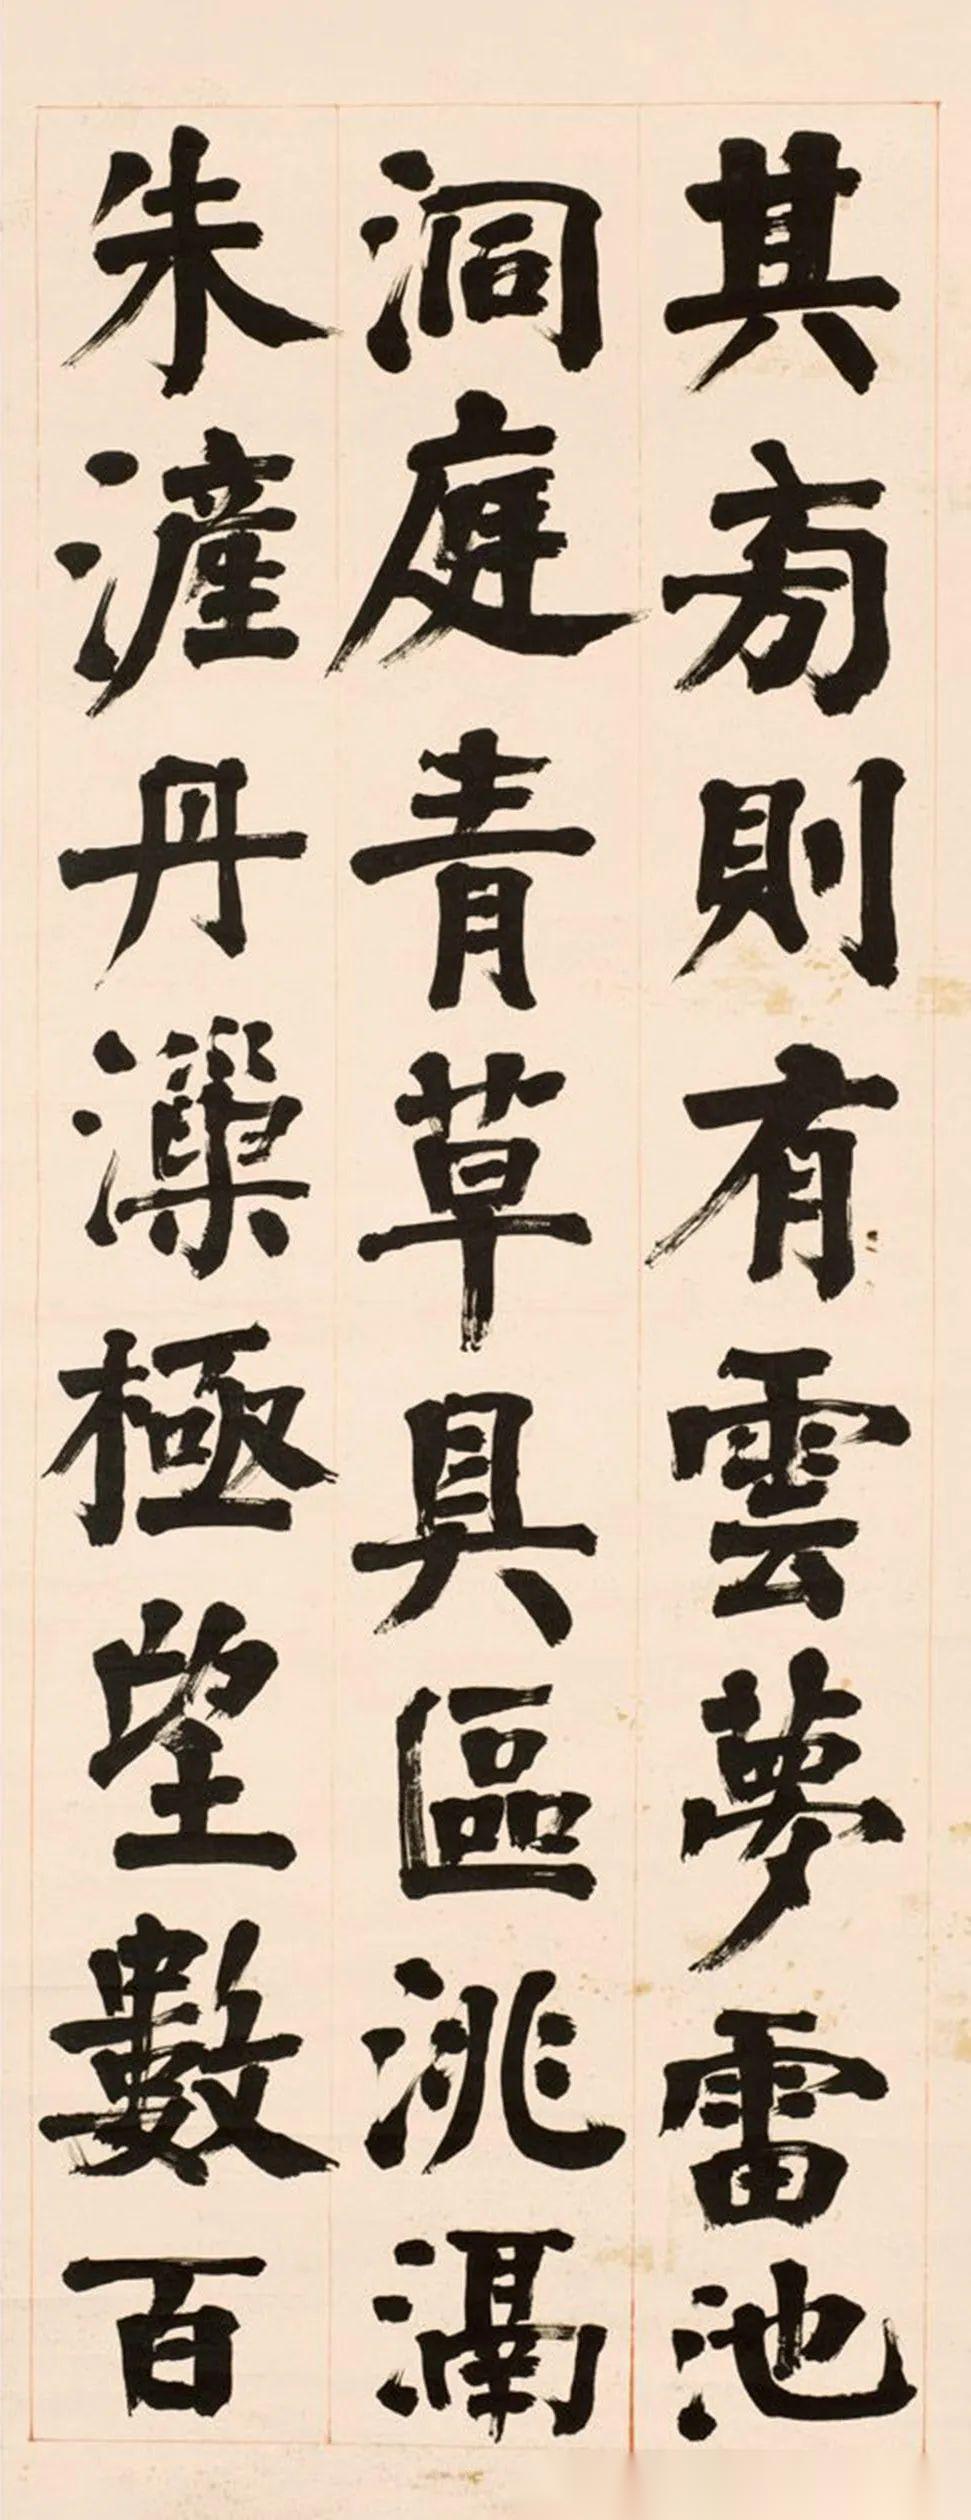 其旁則有雲夢雷池
洞庭青草具區洮滆
朱滻丹漅極望數百